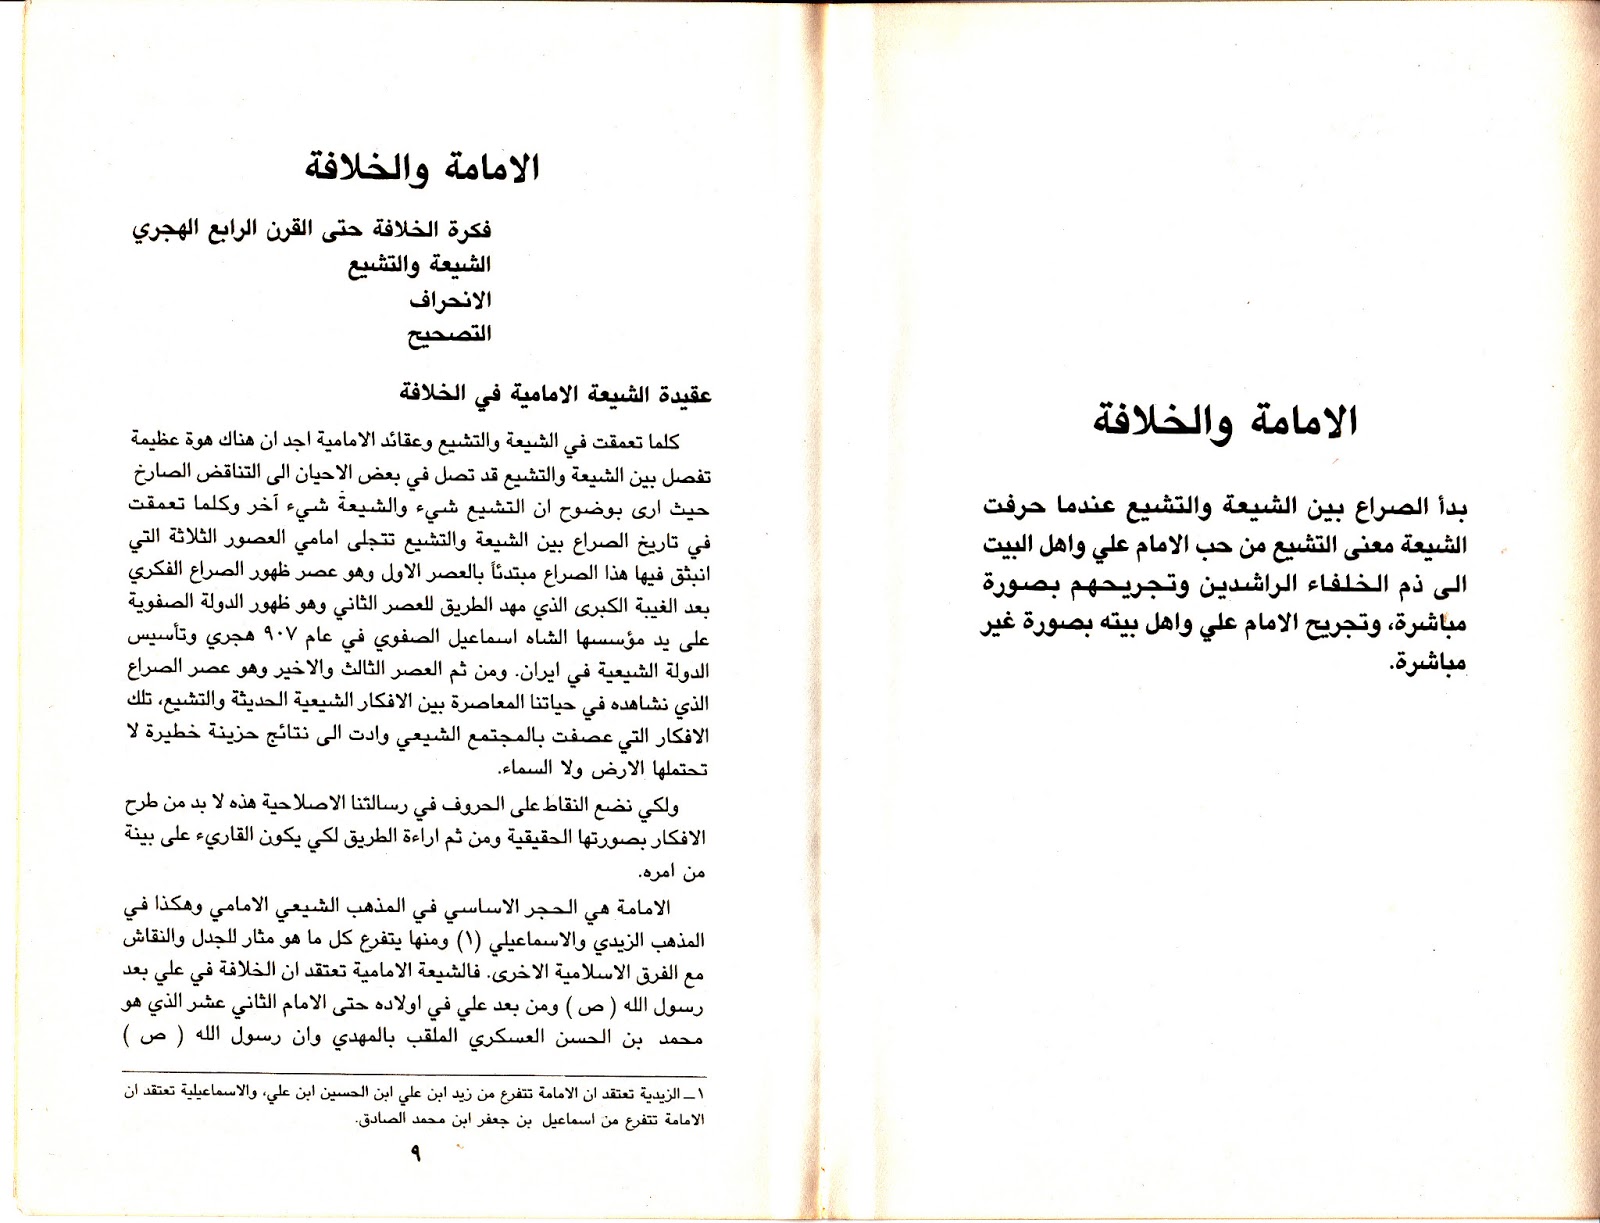 الامامة والخلافة
بدأ الصراع بين الشيعة والتشيع عندما حرفت
الشيعة معنى التشيع من حب الامام علي واهل البيت
الى ذم الخلفاء الراشدين وتجريحهم بصورة
مباشرة، وتجريح الامام علي واهل بيته بصورة غير
مباشرة.
الامامة والخلافة
فكرة الخلافة حتى القرن الرابع الهجري
الشيعة والتشيع
الانحراف
التصحيح
عقيدة الشيعة الامامية في الخلافة
كلما تعمقت في الشيعة والتشيع وعقائد الامامية اجد ان هناك هوة عظيمة
تفصل بين الشيعة والتشيع قد تصل في بعض الاحيان الى التناقض الصارخ
حيث ارى بوضوح ان التشيع شيء والشيعة شيء آخر وكلما تعمقت
في تاريخ الصراع بين الشيعة والتشيع تتجلى امامي العصور الثلاثة التي
انبثق فيها هذا الصراع مبتدئاً بالعصر الاول وهو عصر ظهور الصراع الفكري
بعد الغيبة الكبرى الذي مهد الطريق للعصر الثاني وهو ظهور الدولة الصفوية
على يد مؤسسها الشاه اسماعيل الصفوي في عام ٩٠٧ هجري وتأسيس
الدولة الشيعية في ايران. ومن ثم العصر الثالث والاخير وهو عصر الصراع
الذي نشاهده في حياتنا المعاصرة بين الافكار الشيعية الحديثة والتشيع، تلك
الافكار التي عصفت بالمجتمع الشيعي وادت الى نتائج حزينة خطيرة لا
تحتملها الارض ولا السماء.
ولكي نضع النقاط على الحروف في رسالتنا الاصلاحية هذه لا بد من طرح
الافكار بصورتها الحقيقية ومن ثم اراءة الطريق لكي يكون القاريء على بينة
من امره.
الامامة هي الحجر الاساسي في المذهب الشيعي الامامي وهكذا في
المذهب الزيدي والاسماعيلي (١) ومنها يتفرع كل ما هو مثار للجدل والنقاش
مع الفرق الاسلامية الاخرى. فالشيعة الامامية تعتقد ان الخلافة في علي بعد
رسول الله ( ص ) ومن بعد علي في اولاده حتى الامام الثاني عشر الذي هو
محمد بن الحسن العسكري الملقب بالمهدي وان رسول الله ( ص )
١ ــ الزيدية تعتقد ان الامامة تتفرع من زيد ابن علي ابن الحسين ابن علي، والاسماعيلية تعتقد ان
الامامة تتفرع من اسماعيل بن جعفر ابن محمد الصادق.
٩